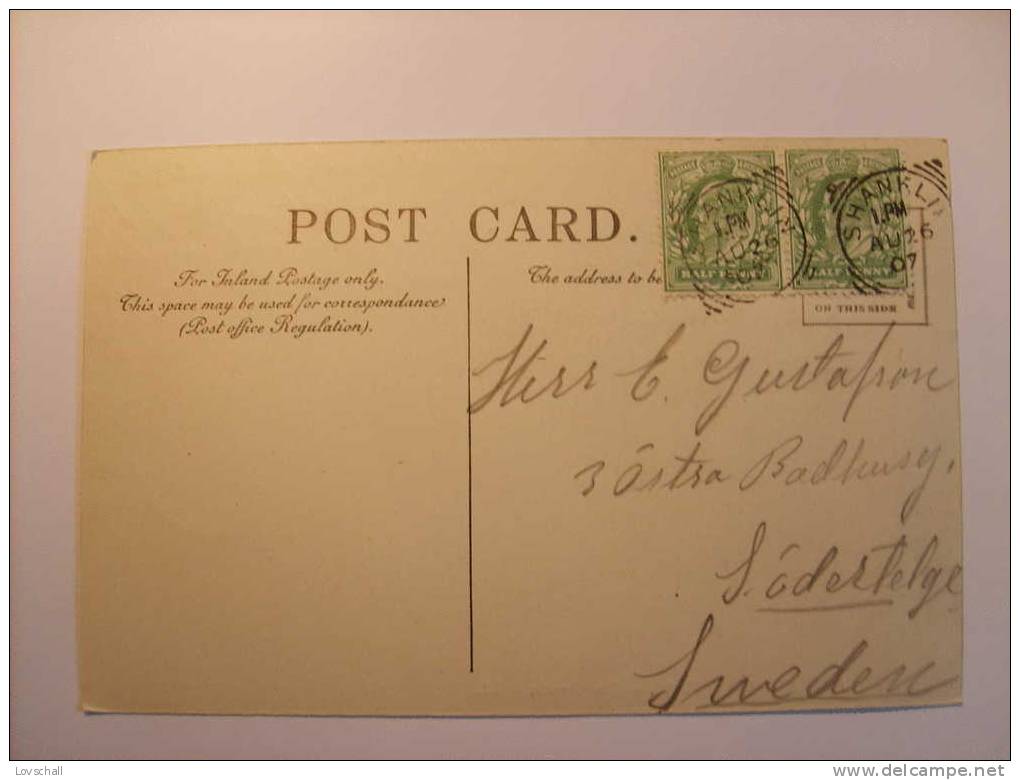 POST CARD.
For Inland Postage only.
This space may be used for correspondence
(Post office Regulation).
The address to be
HALF PENNY
HALF PENNY
SHANKLIN
1.PM
AU 26
07
SHANKLIN
1.PM
AU 26
07
ON THIS SIDE
Herr E. Gustafson
3 Östra Badhusg.
Södertelge
Sweden
Lovschall
delcampe.net